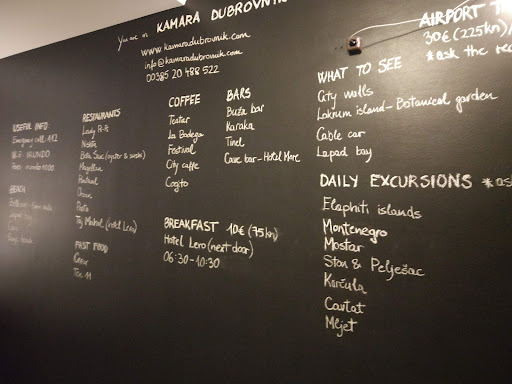 You are in KAMARA DUBROVNIK
www.kamaradubrovnik.com
info@kamaradubrovnik.com
00385 20 488 522
USEFUL INFO
Emergency call 112
BEACH
RESTAURANTS
Lady Pi-Pi
Nishta
Bota Sare (oyster & sushi)
Magellan
Pantarul
Orsan
Porto
Taj Mahal (hotel Lero)
FAST FOOD
COFFEE
Teatar
La Bodega
Festival
City caffe
Cogito
BARS
Buža bar
Karaka
Tinel
Cave bar - Hotel More
BREAKFAST 10€ (75kn)
Hotel Lero (next door)
06:30 - 10:30
AIRPORT
30€ (225kn)/
*ask the
WHAT TO SEE
City walls
Lokrum island - Botanical garden
Cable car
Lapad bay
DAILY EXCURSIONS *ask
Elaphiti islands
Montenegro
Mostar
Ston & Pelješac
Korčula
Cavtat
Mljet